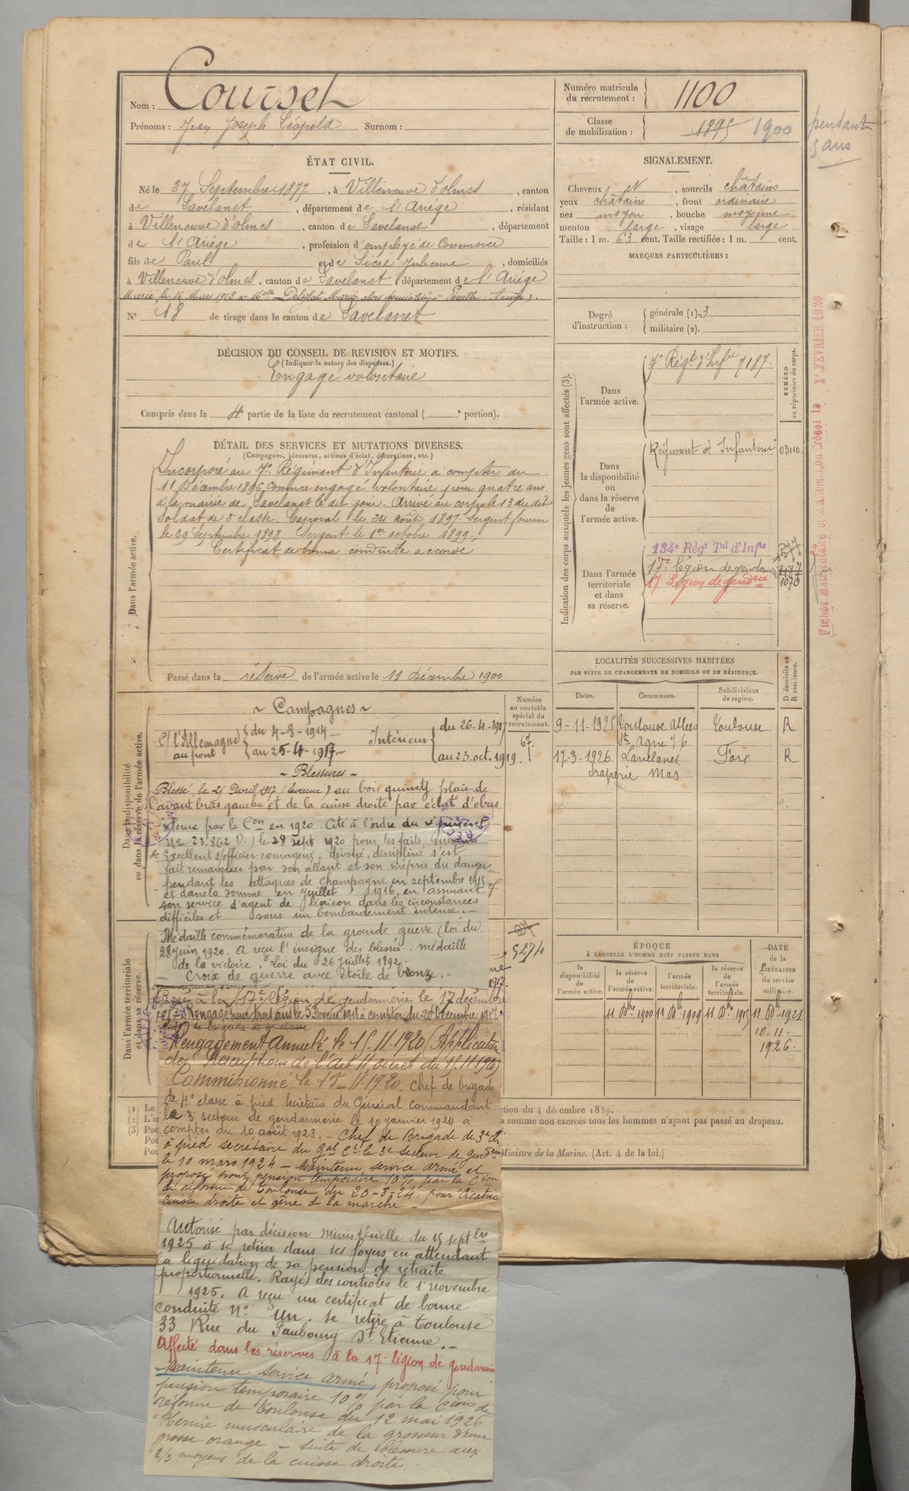 Nom : Courset
Prénoms : Jean Joseph Léopold Surnom :
Numéro matricule du recrutement : 1100
Classe de mobilisation : 1895 1900
pendant
5 ans
ÉTAT CIVIL.
Né le 27 Septembre 1877, à Villeneuve d'olmes, canton
de Lavelanet, département de l'Ariége, résidant
à Villeneuve d'olmes, canton de Lavelanet, département
de l'Ariége, profession d'employé de Commerce
fils de Paul et de Sicre Julienne, domiciliés
à Villeneuve d'olmes, canton de Lavelanet, département de l'Ariége
Marié le 16 Mars 1908 à
N° 18 de tirage dans le canton de Lavelanet
SIGNALEMENT.
Cheveux et, sourcils châtains
yeux châtains, front ordinaire
nez moyen, bouche moyenne
menton large, visage large
Taille : 1 m. 63 cent. Taille rectifiée : 1 m. cent.
MARQUES PARTICULIÈRES :
Degré d'instruction : générale (1) 3
militaire (2).
DÉCISION DU CONSEIL DE REVISION ET MOTIFS.
(Indiquer la nature des dispenses.)
Engagé volontaire
Compris dans la 4e partie de la liste du recrutement cantonal ( e portion).
DÉTAIL DES SERVICES ET MUTATIONS DIVERSES.
(Campagnes, blessures, actions d'éclat, décorations, etc.)
Dans l'armée active.
Incorporé au 7e Régiment d'Infanterie à compter du
11 Décembre 1896, comme engagé volontaire pour quatre ans
à la mairie de Lavelanet le dit jour. Arrivé au corps le 13 du dit
Soldat de 2e classe. Caporal le 24 Août 1897. Sergent fourrier
le 29 Septembre 1898. Sergent le 1er octobre 1899.
Certificat de bonne conduite accordé
Passé dans la réserve de l'armée active le 11 Décembre 1900
Indication des corps auxquels les jeunes gens sont affectés (3).
NUMÉRO au répertoire du corps.
Dans l'armée active.
7e Régt d'Infie 7187
Dans la disponibilité ou dans la réserve de l'armée active.
Régiment d'Infanterie 03110
Dans l'armée territoriale et dans sa réserve.
134e Régt Tal d'Infie
17e légion de gendarmie
17 Légion de gendrie
1070
1er FÉVRIER 1929
LOCALITÉS SUCCESSIVES HABITÉES
PAR SUITE DE CHANGEMENTS DE DOMICILE OU DE RÉSIDENCE.
Dates. Communes. Subdivisions de région. D domicile ou R résidence.
9-11-1925 Toulouse Toulouse R
17-3-1926 Lavelanet Foix R
draperie Mas
Dans la disponibilité ou dans la réserve de l'armée active.
Numéro au contrôle spécial du recrutement.
~ Campagnes ~
c/ l'Allemagne au front du 4-8-1914 au 25-4-1917
Intérieur du 26-4-1917 au 23.oct.1919.
~ Blessures ~
Blessé, le 25 Avril 1917 au bois plaie de
l'avant bras gauche et de la cuisse droite par éclat d'obus
par la Con en 1920. Cité à l'ordre du régiment
No 23.862 D.) le 28 Sept 1920 pour les faits suivants
Excellent s/officier courageux, dévoué, discipliné s'est
fait remarquer par son allant et son mépris du danger
pendant les attaques de Champagne en septembre 1915
et dans la Somme en Juillet 1916, en assurant
son service d'agent de liaison dans les circonstances
difficiles et sous un bombardement intense. —
Médaille commémorative de la grande guerre (loi du
28 Juin 1920. A reçu l'insigne des blessés. médaille
de la victoire. Loi du 26 Juillet 1922.
Croix de guerre avec étoile de bronze. —
Dans l'armée territoriale et dans sa réserve.
Passé à la 17e Légion de gendarmerie le 17 décembre
Rengagé pour trois ans le 3 Février 1918 à compter du 20 décembre 1917
Rengagement Annulé le 15.11.1920 (Application
des Prescriptions de l'art 11, décret du 15.11.1920
Commissionné le 15-11-1920. Chef de brigade
de 4e classe à pied Secrétaire du Général commandant
le 3e secteur de gendarmerie le 10 janvier 1924 à
compter du 10 août 1923. — Chef de Brigade de 3e cl.
à pied secrétaire du Gal Ct le 3e secteur de gendrie
le 10 mars 1924 — Maintenu service armé et
proposé pour pension temporaire 10% par la Cion
de réforme de Toulouse du 20-8-24 pour cicatrice
cuisse droite et gêne de la marche —
Autorisé par décision Ministérielle du 15 septbre
1925 à se retirer dans ses foyers en attendant
la liquidation de sa pension de retraite
proportionnelle. Rayé des contrôles le 1er novembre
1925. A reçu un certificat de bonne
conduite No Un. Se retire à Toulouse
33 Rue du Faubourg St Etienne. —
Affecté dans les réserves à la 17e légion de gendarmie
Maintenu service armé, proposé pour
pension temporaire 10% par la Cion de
réforme de Toulouse du 12 mai 1926
"Hernie musculaire de la grosseur d'une
grosse orange — suite de blessure aux
2/3 moyens de la cuisse droite.
ÉPOQUE
À LAQUELLE L'HOMME DOIT PASSER DANS
la disponibilité de l'armée active. la réserve de l'armée active. l'armée territoriale. la réserve de l'armée territoriale.
DATE de la LIBÉRATION du service militaire.
11 Dbre 1900 11 Dbre 1909 11 Dbre 1915 11 Dbre 1921
10-11-
1926
ction du 4 décembre 1839.
comme non exercés tous les hommes n'ayant pas passé au drapeau.
Ministre de la Marine. (Art. 4 de la loi.)